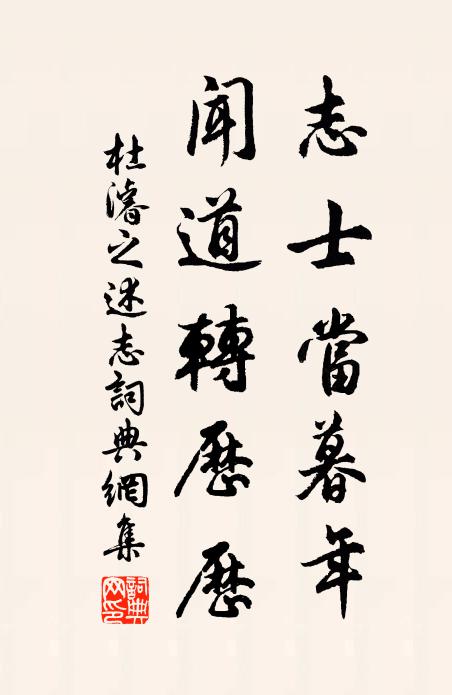 志士當暮年
聞道轉歷歷
杜濬之述志詞典網集
詞典网印